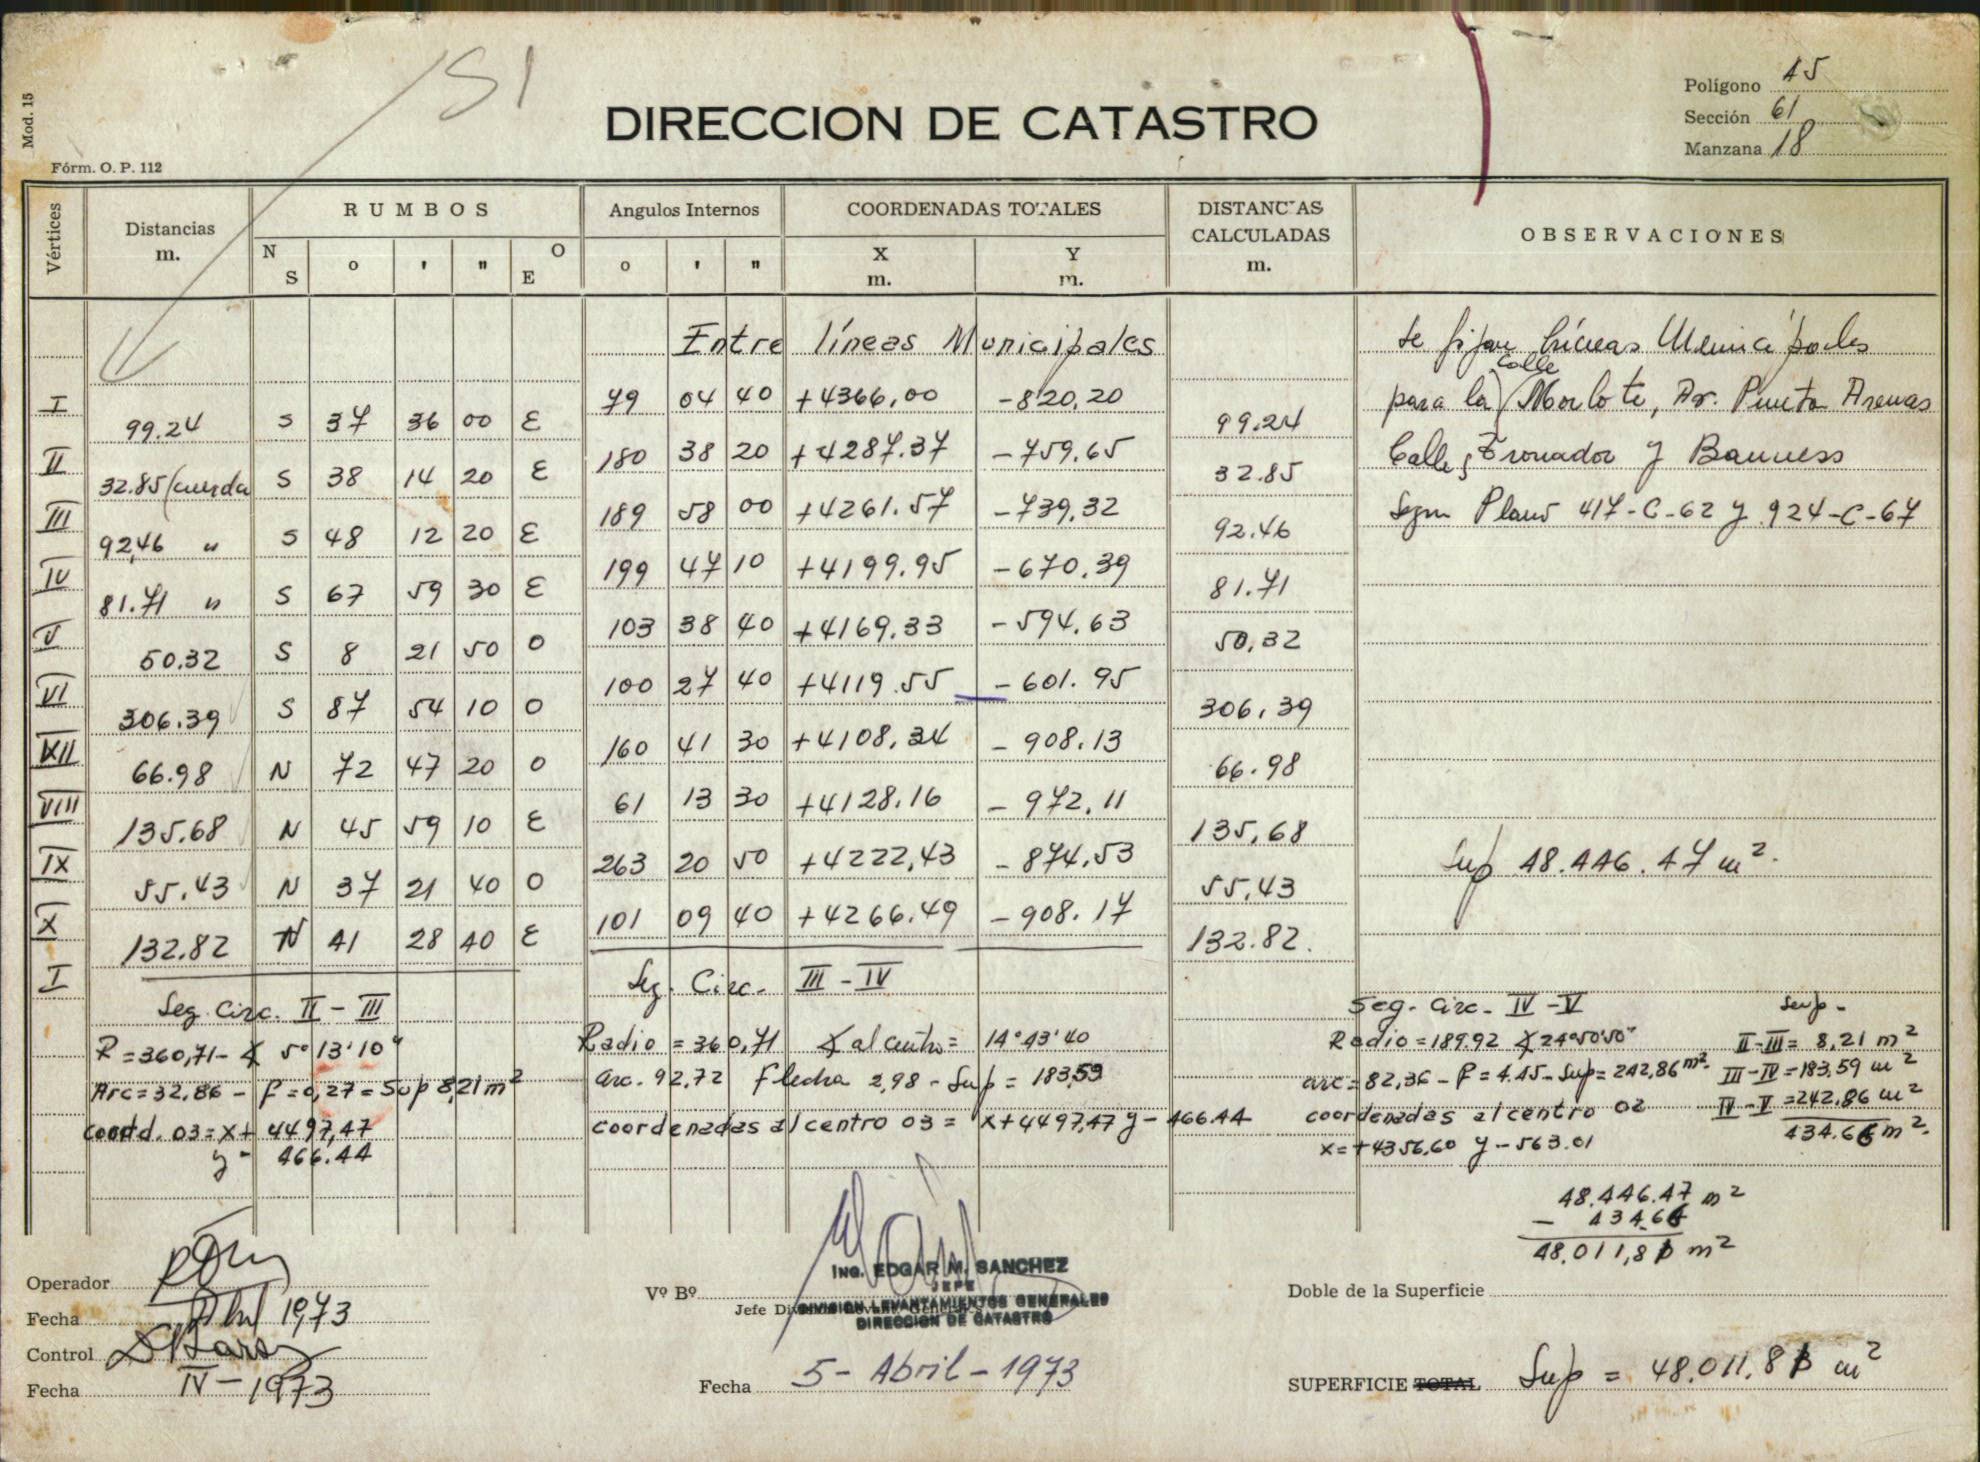 51
Mod. 15
Fórm. O. P. 112
DIRECCION DE CATASTRO
Polígono 45
Sección 61
Manzana 18
Vértices
Distancias
m.
RUMBOS
N S ° ' " O E
Angulos Internos
° ' "
COORDENADAS TOTALES
X m. Y m.
DISTANCIAS CALCULADAS
m.
OBSERVACIONES
Entre líneas Municipales
I 79 04 40 +4366,00 -820,20
99.24 S 37 36 00 E 99.24
II 180 38 20 +4287.37 -759.65
32.85 (cuerda S 38 14 20 E 32.85
III 189 58 00 +4261.57 -739,32
92,46 " S 48 12 20 E 92.46
IV 199 47 10 +4199.95 -670.39
81.71 " S 67 59 30 E 81.71
V 103 38 40 +4169.33 -594.63
50.32 S 8 21 50 O 50,32
VI 100 27 40 +4119.55 -601.95
306.39 S 87 54 10 O 306,39
VII 160 41 30 +4108,34 -908.13
66.98 N 72 47 20 O 66.98
VIII 61 13 30 +4128.16 -972.11
135.68 N 45 59 10 E 135,68
IX 263 20 50 +4222,43 -874,53
55.43 N 37 21 40 O 55,43
X 101 09 40 +4266.49 -908.17
132.82 N 41 28 40 E 132.82.
I
se fijan líneas Municipales
para la calle Morlote, Av. Punta Arenas
Calles Tronador y Bauness
Segun Plano 417-C-62 y 924-C-67
Sup 48.446.47 m².
Seg. Circ. II - III
R = 360,71 - ∡ 5° 13' 10"
Arc = 32,86 - f = 0,27 = Sup 8,21 m²
coord. 03 = x + 4497,47
y - 466.44
Seg. Circ. III - IV
Radio = 360,71 ∡ al centro = 14° 43' 40
arc. 92,72 Flecha 2,98 - Sup = 183,59
coordenadas al centro 03 = x+4497,47 y-466.44
Seg. Circ. IV - V
Radio = 189.92 ∡ 24°50'50"
arc = 82,36 - f = 4.45 - Sup = 242,86 m².
coordenadas al centro 02
x = +4356,60 y - 563.01
Sup -
II-III = 8,21 m²
III-IV = 183,59 m²
IV-V = 242,86 m²
434.66 m².
48.446.47 m²
- 434.66
48,011,81 m²
Operador
Fecha Abril 1973
Control
Fecha IV - 1973
Vº Bº
Jefe
ING. EDGAR M. SANCHEZ
JEFE
DIVISION LEVANTAMIENTOS GENERALES
DIRECCION DE CATASTRO
Fecha 5 - Abril - 1973
Doble de la Superficie
SUPERFICIE TOTAL Sup = 48.011.81 m²